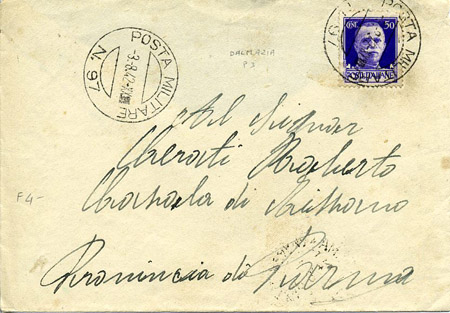 POSTA MILITARE
N. 97
-3.8.42.XX
DALMAZIA
P3
CENT. 50
POSTE ITALIANE
POSTA MILI
97
Al Signor
Merati Roberto
F4-
di
Provincia di Parma